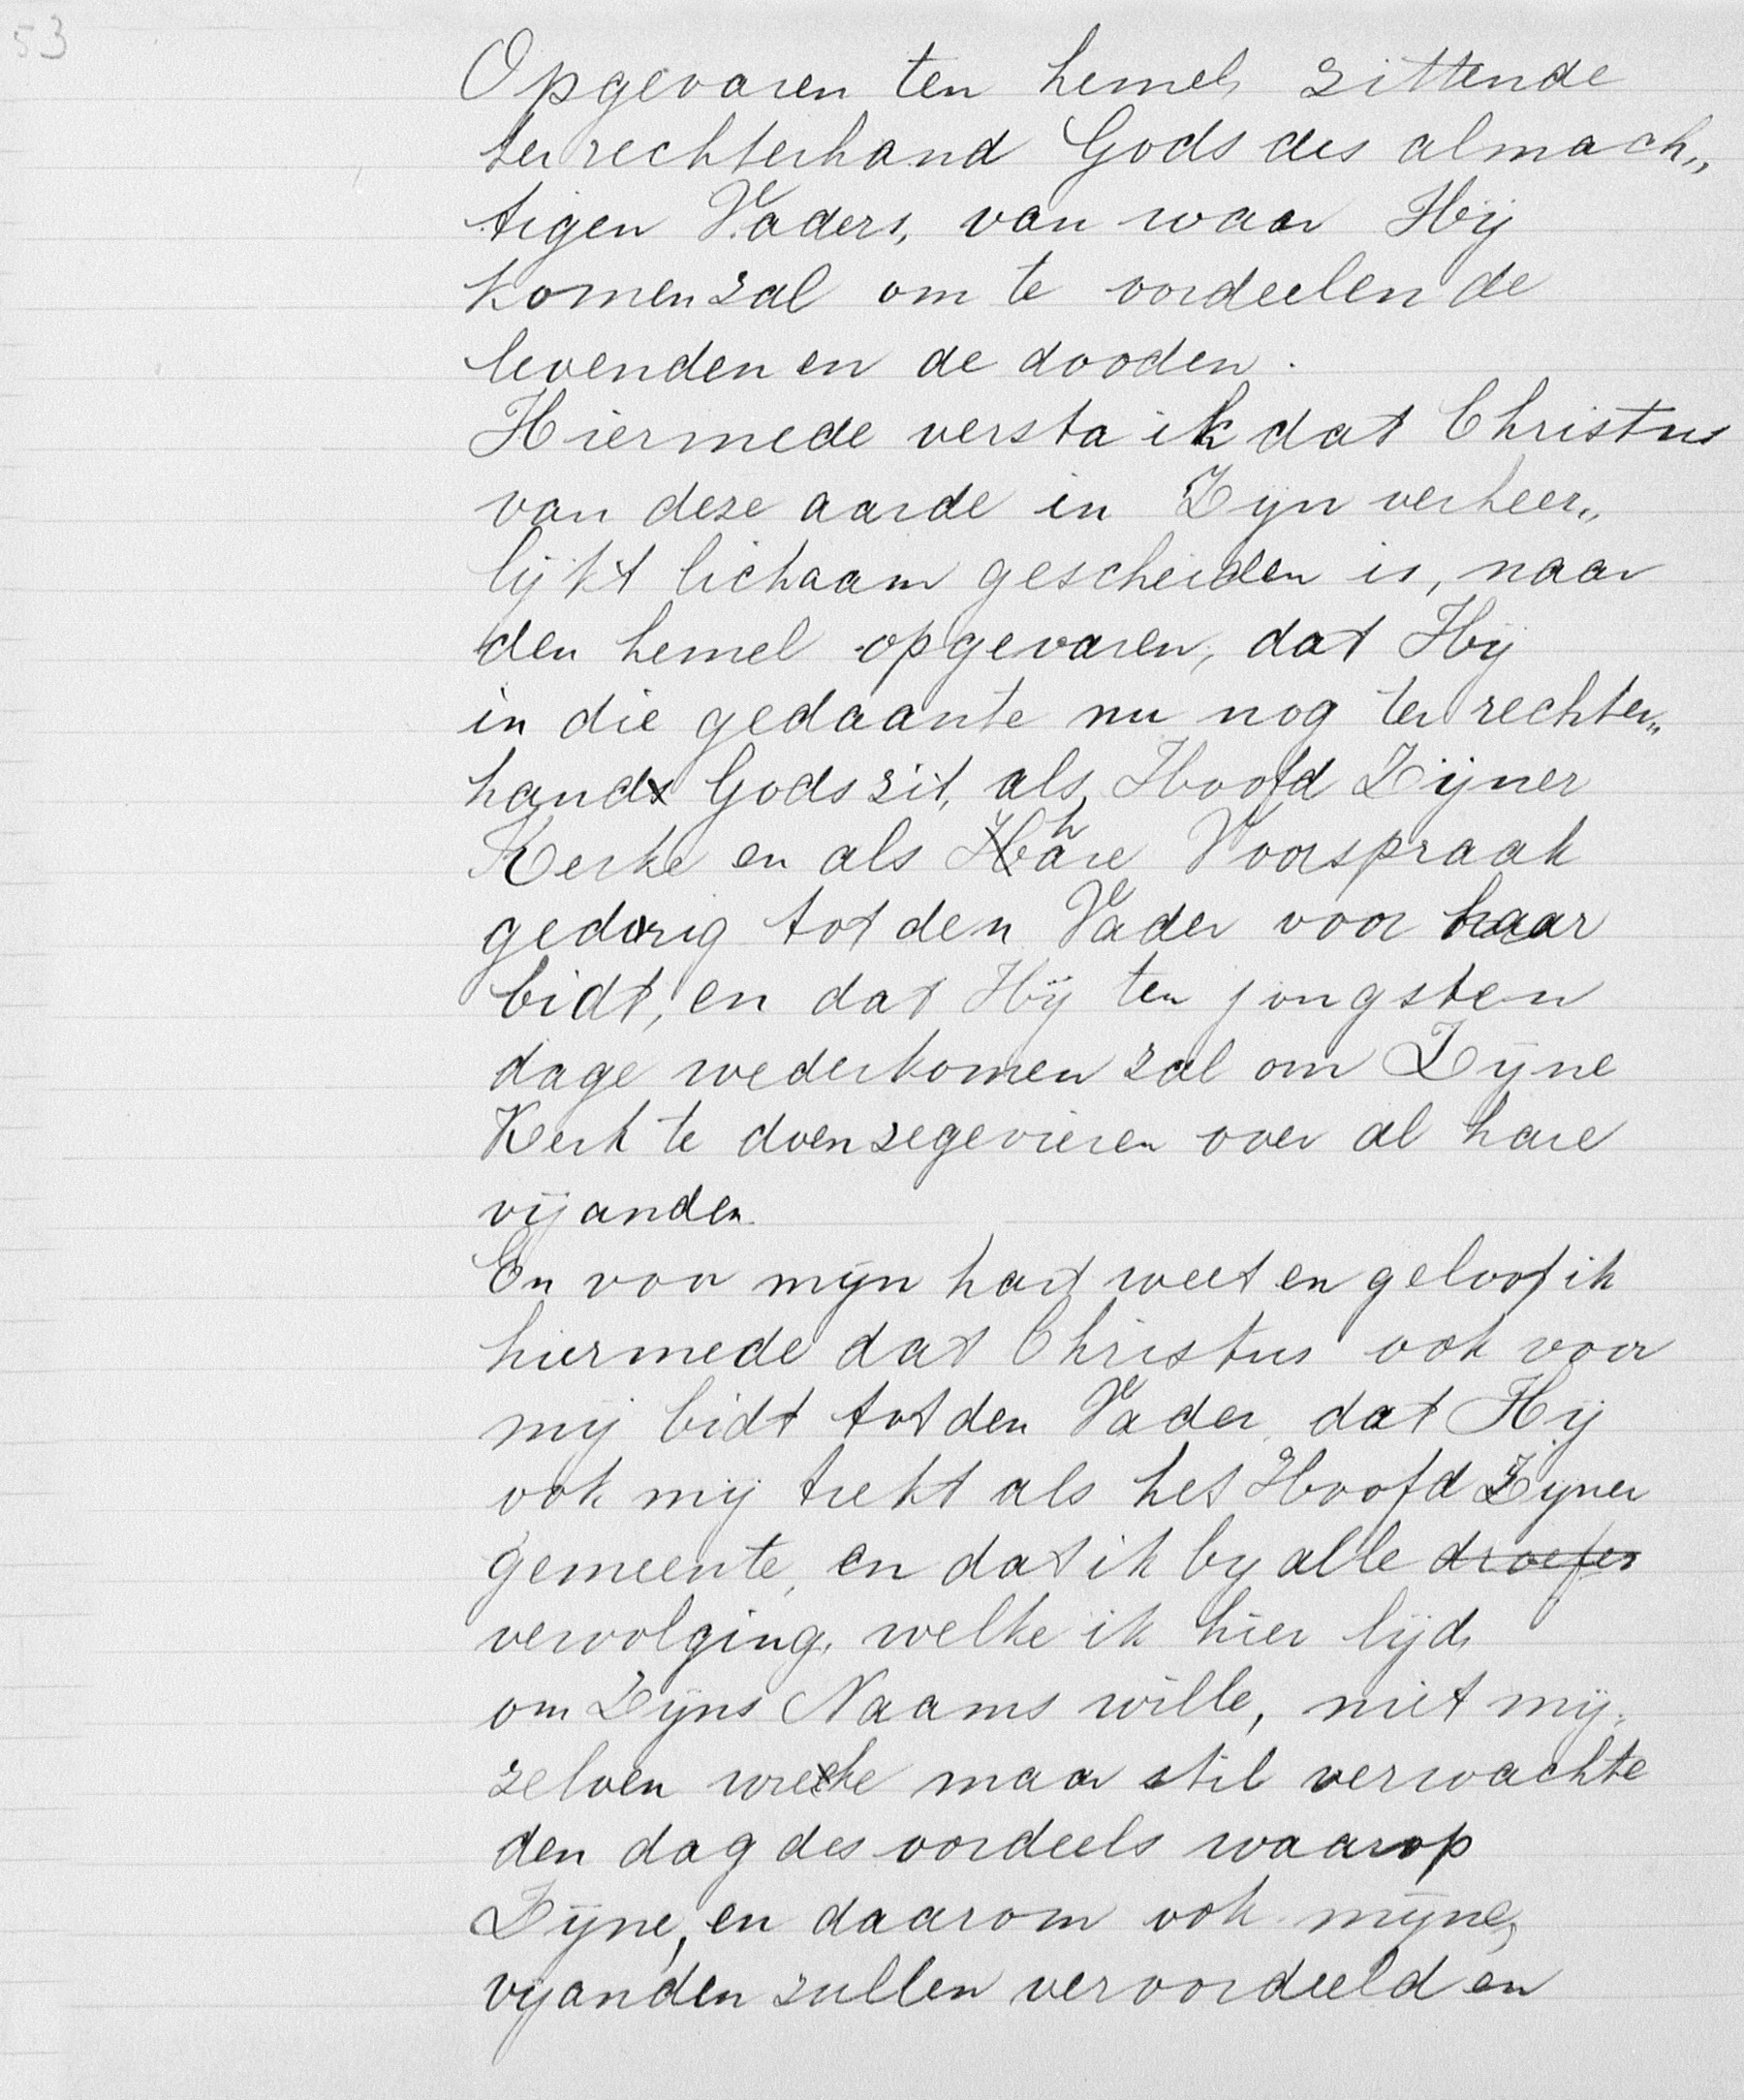 53
Opgevaren ten hemel, zittende
ter rechterhand Gods des almach„
tigen Vaders, van waar Hij
komen zal om te oordeelen de
levenden en de dooden.
Hiermede versta ik dat Christus
van deze aarde in Zijn verheer„
lijkt lichaam gescheiden is, naar
den hemel opgevaren, dat Hij
in die gedaante nu nog ter rechter„
hand Gods zit, als Hoofd Zijner
Kerke en als hare Voorspraak
gedurig tot den Vader voor haar
bidt, en dat Hij ten jongsten
dage wederkomen zal om Zijne
Kerk te doen zegevieren over al hare
vijanden.
En voor mijn hart weet en geloof ik
hiermede dat Christus ook voor
mij bidt tot den Vader, dat Hij
ook mij trekt als het Hoofd Zijner
gemeente, en dat ik bij alle droefen
vervolging, welke ik hier lijd,
om Zijns Naams wille, niet mij
zelven wreke maar stil verwachte
den dag des oordeels waarop
Zijne, en daarom ook mijne,
vijanden zullen veroordeeld en